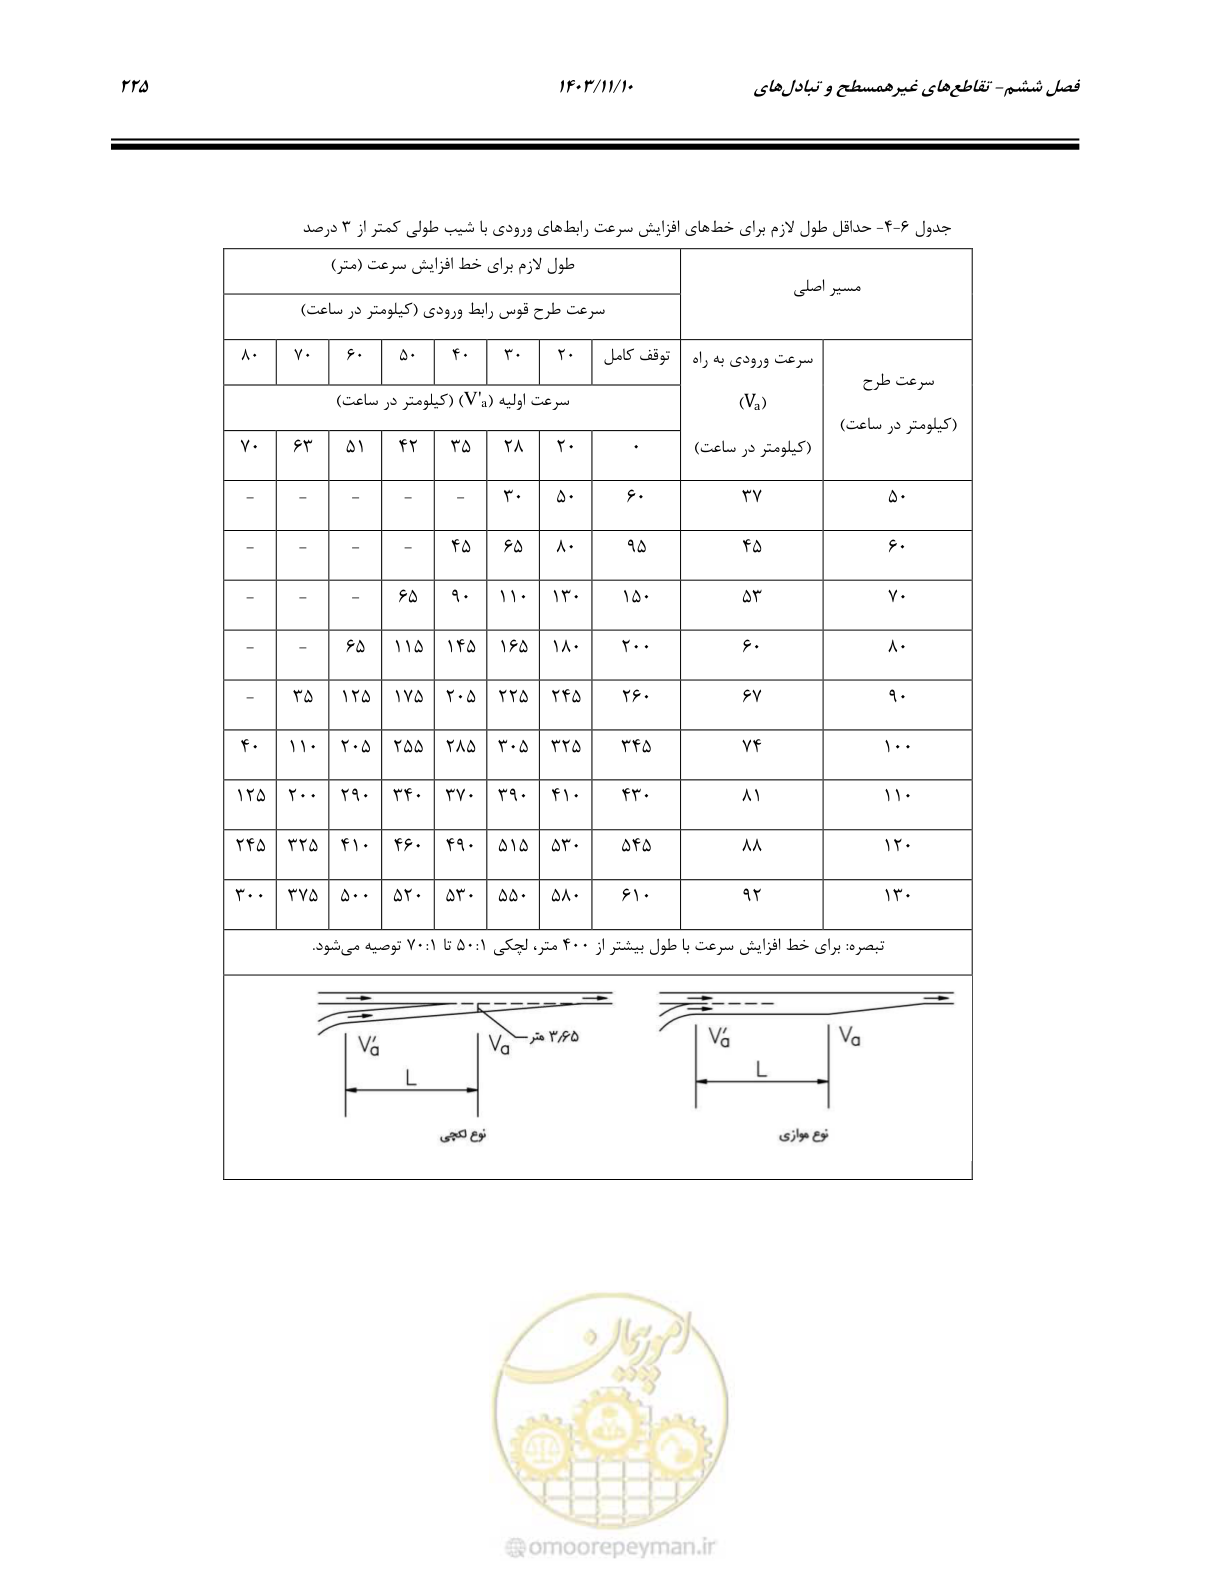 فصل ششم- تقاطع‌های غیرهمسطح و تبادل‌های ۱۴۰۳/۱۱/۱۰ ۲۲۵
جدول ۶-۴- حداقل طول لازم برای خط‌های افزایش سرعت رابط‌های ورودی با شیب طولی کمتر از ۳ درصد
مسیر اصلی
طول لازم برای خط افزایش سرعت (متر)
سرعت طرح قوس رابط ورودی (کیلومتر در ساعت)
سرعت طرح
(کیلومتر در ساعت)
سرعت ورودی به راه
(Va)
(کیلومتر در ساعت)
توقف کامل ۲۰ ۳۰ ۴۰ ۵۰ ۶۰ ۷۰ ۸۰
سرعت اولیه (V'a) (کیلومتر در ساعت)
۰ ۲۰ ۲۸ ۳۵ ۴۲ ۵۱ ۶۳ ۷۰
۵۰ ۳۷ ۶۰ ۵۰ ۳۰ – – – – –
۶۰ ۴۵ ۹۵ ۸۰ ۶۵ ۴۵ – – – –
۷۰ ۵۳ ۱۵۰ ۱۳۰ ۱۱۰ ۹۰ ۶۵ – – –
۸۰ ۶۰ ۲۰۰ ۱۸۰ ۱۶۵ ۱۴۵ ۱۱۵ ۶۵ – –
۹۰ ۶۷ ۲۶۰ ۲۴۵ ۲۲۵ ۲۰۵ ۱۷۵ ۱۲۵ ۳۵ –
۱۰۰ ۷۴ ۳۴۵ ۳۲۵ ۳۰۵ ۲۸۵ ۲۵۵ ۲۰۵ ۱۱۰ ۴۰
۱۱۰ ۸۱ ۴۳۰ ۴۱۰ ۳۹۰ ۳۷۰ ۳۴۰ ۲۹۰ ۲۰۰ ۱۲۵
۱۲۰ ۸۸ ۵۴۵ ۵۳۰ ۵۱۵ ۴۹۰ ۴۶۰ ۴۱۰ ۳۲۵ ۲۴۵
۱۳۰ ۹۲ ۶۱۰ ۵۸۰ ۵۵۰ ۵۳۰ ۵۲۰ ۵۰۰ ۳۷۵ ۳۰۰
تبصره: برای خط افزایش سرعت با طول بیشتر از ۴۰۰ متر، لچکی ۵۰:۱ تا ۷۰:۱ توصیه می‌شود.
V'a Va
L
نوع موازی
۳٫۶۵ متر
V'a Va
L
نوع لکچی
امور پیمان
@omoorepeyman.ir